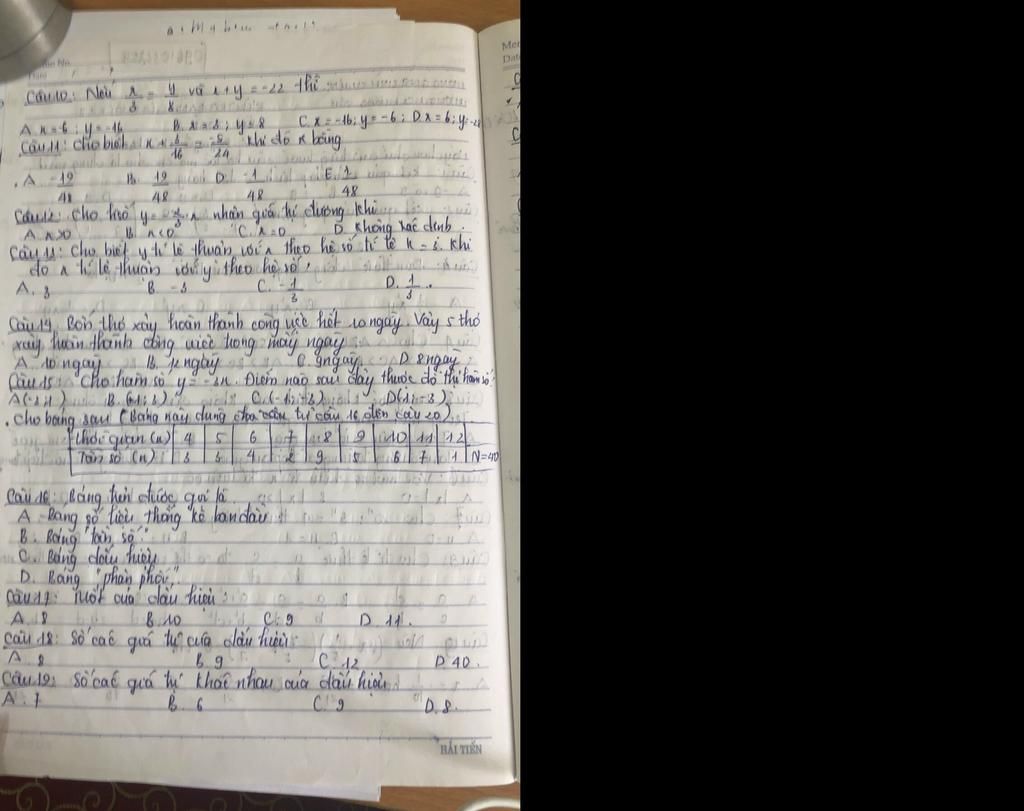 Câu 10: Nếu x/3 = y/8 và x+y = -22 thì
A. x=6; y=-16 B. x=3; y=8 C. x=-16; y=-6; D. x=6; y=-28
Câu 11: Cho biết x + 3/16 = -5/24 khi đó x bằng
A. -19/48 B. 19/48 D. -1/48 E. 1/48
Câu 12: Cho h/số x nhận giá trị dương khi
A. x>0 B. x<0 C. x=0 D. Không xác định.
Câu 13: Cho biết y tỉ lệ thuận với x theo hệ số tỉ lệ k = 3. Khi
đó x tỉ lệ thuận với y theo hệ số:
A. 3 B. -3 C. -1/3 D. 1/3.
Câu 14. Bốn thợ xây hoàn thành công việc hết 10 ngày. Vậy 5 thợ
xây hoàn thành công việc trong mấy ngày
A. 10 ngày B. 12 ngày C. 9 ngày D. 8 ngày
Câu 15: Cho hàm số y = -3x. Điểm nào sau đây thuộc đồ thị hàm số
C. (-1; -3) D(1; -3)
. Cho bảng sau (Bảng này dùng cho câu từ câu 16 đến câu 20)
Thời gian (x) 4 5 6 7 8 9 10 11 12
Tần số (n) 3 3 4 2 9 5 6 7 1 N=40
Câu 16: Bảng trên được gọi là
A. Bảng số liệu thống kê ban đầu
B. Bảng "tần số"
C. Bảng dấu hiệu
D. Bảng "phân phối".
Câu 17: Mốt của dấu hiệu:
A. 8 B. 10 C. 9 D. 11.
Câu 18: Số các giá trị của dấu hiệu:
A. 8 B. 9 C. 12 D. 40.
Câu 19: Số các giá trị khác nhau của dấu hiệu
A. 7 B. 6 C. 9 D. 8.
HẢI TIẾN